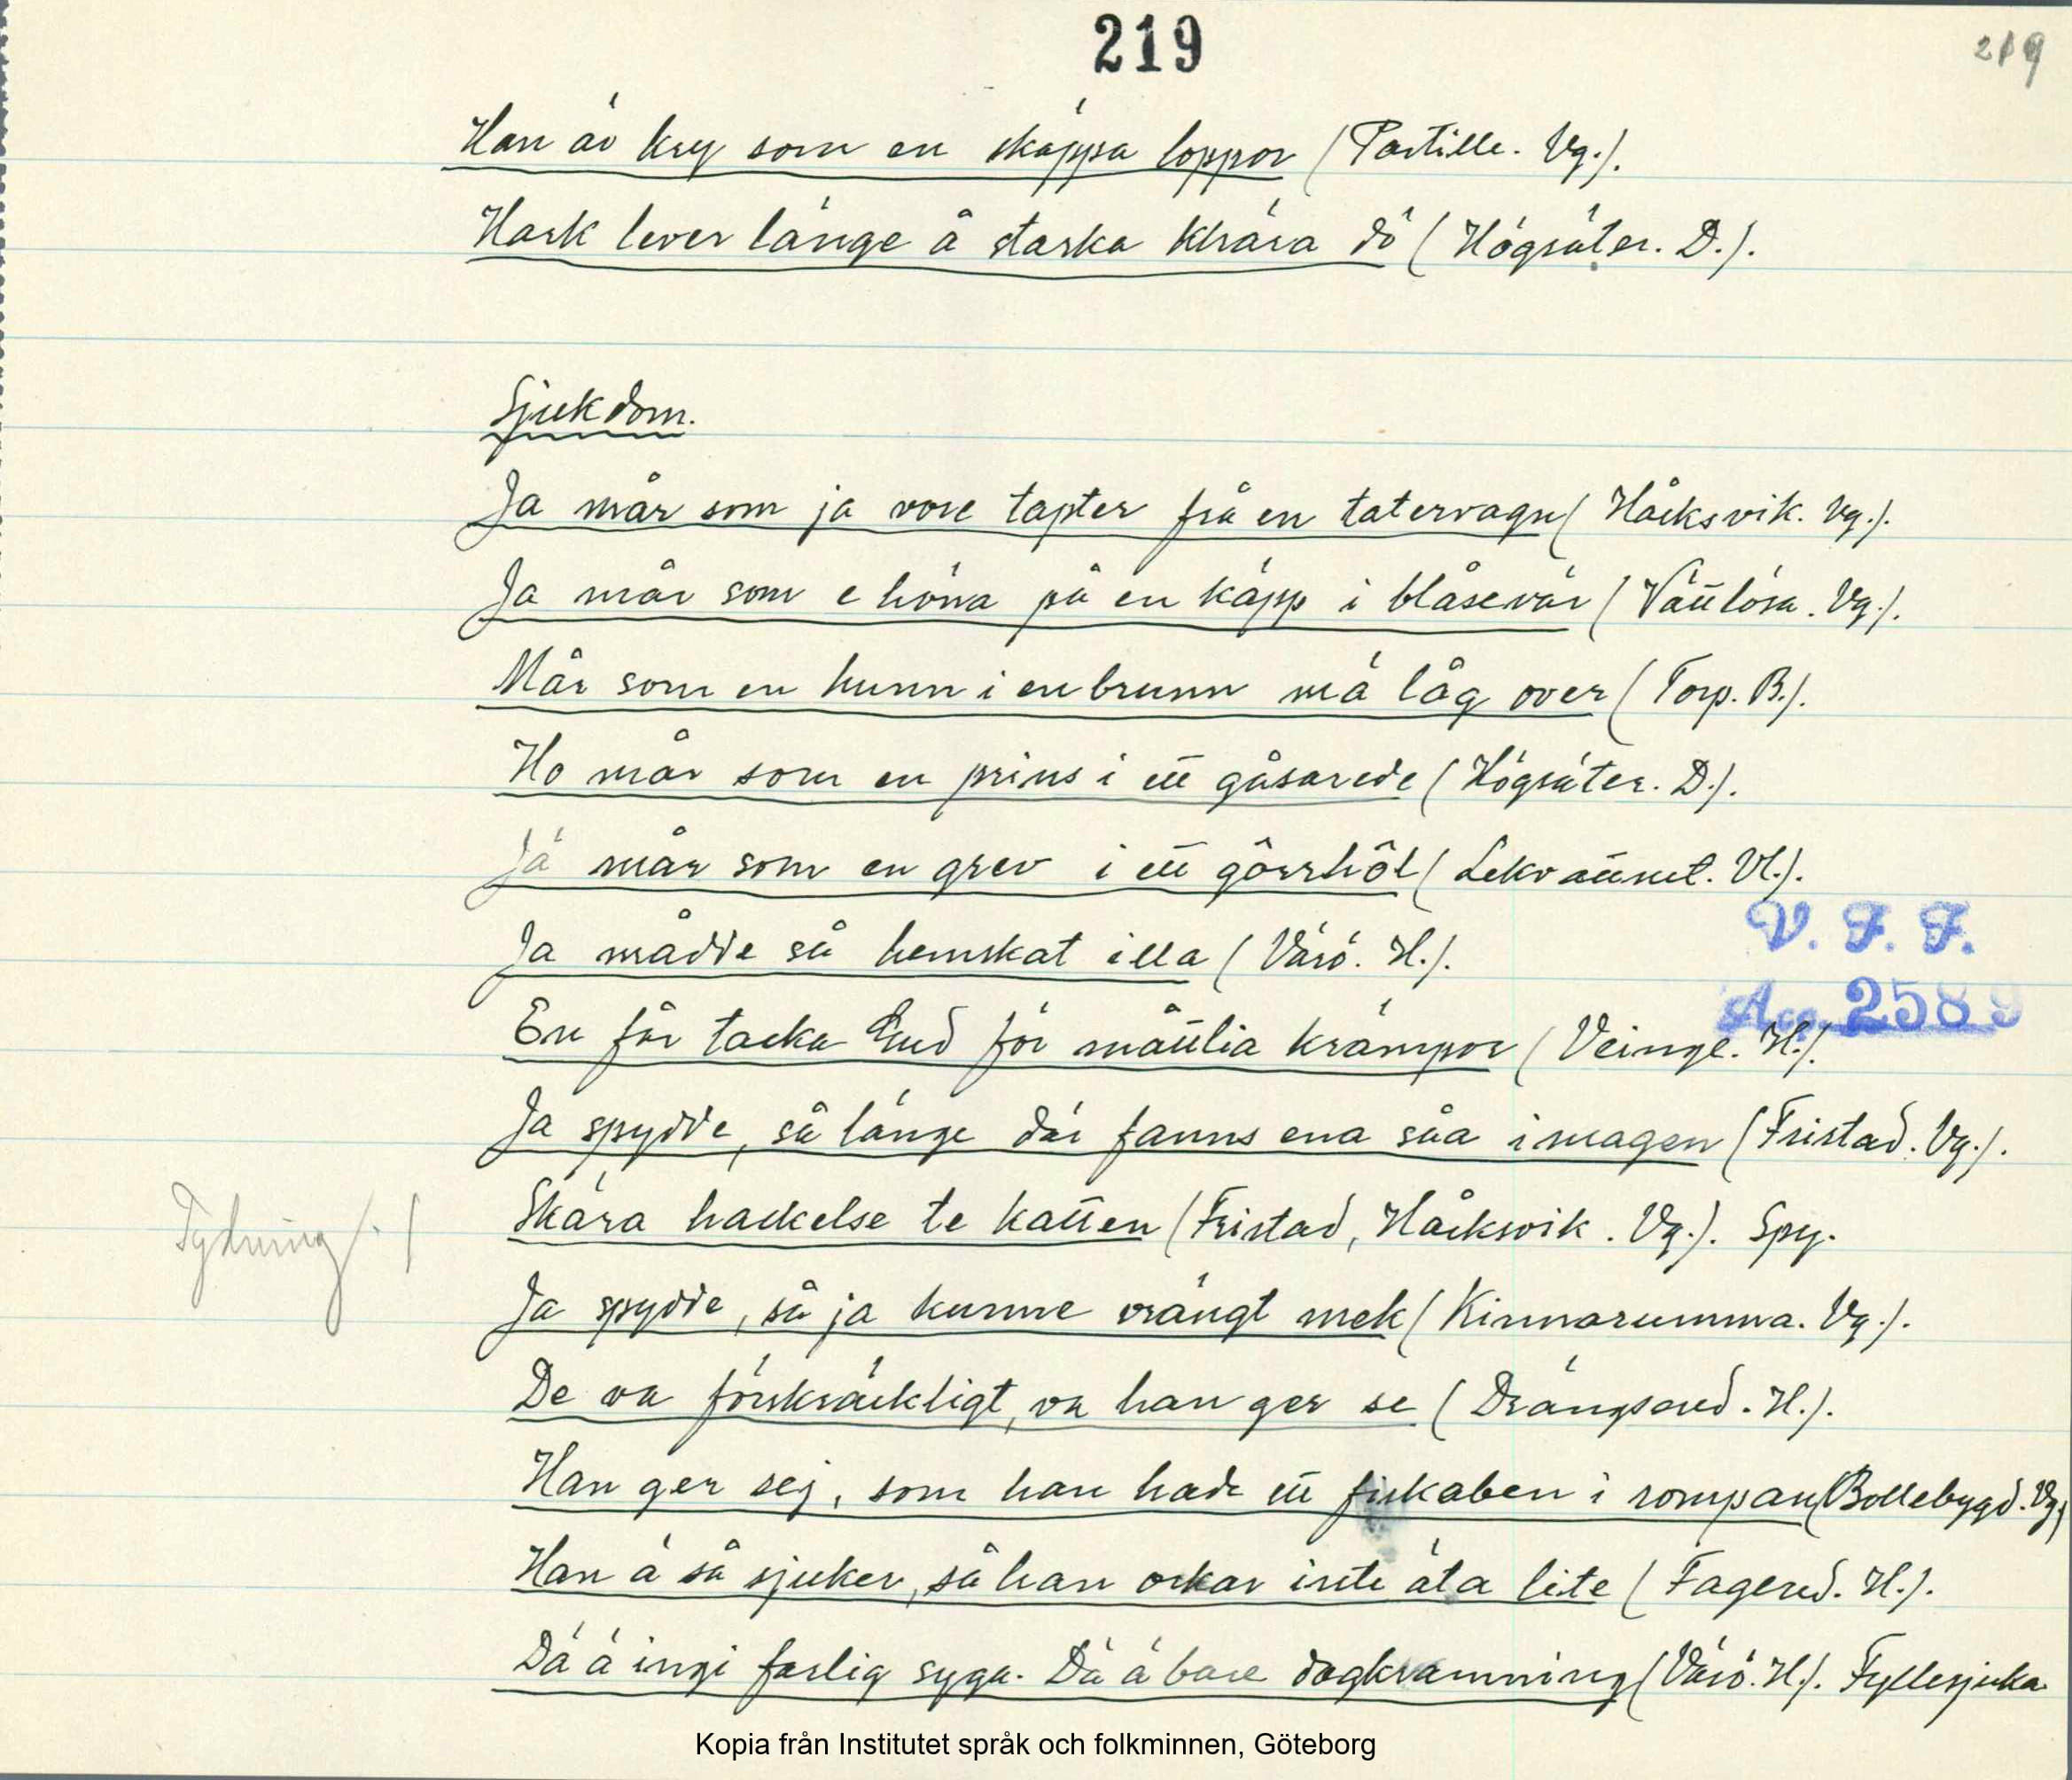 219
219
Han är kry som en skäppa loppor (Partille. Vg.).
Hark lever länge å starka kbrära dö (Högsäter. D.).
Sjukdom.
Ja mår som ja vore tapter frå en tatervagn (Håcksvik. Vg.).
Ja mår som e höna på en käpp i blåsevär (Vättlösa. Vg.).
Mår som en hunn i en brunn mä låg över (Torp. B.).
Ho mår som en prins i ett gåsarede (Högsäter. D.).
Jä mår som en grev i ett görrhöl (Lekvattnet. Vl.).
V. F. F.
Ja mådde så hemskat illa (Värö. H.).
Acc. 2589
En får tacka Gud för måttlia krämpor (Veinge. H.).
Ja spydde, så länge där fanns ena såa i magen (Fristad. Vg.).
Tydning /. /
Skära hackelse te katten (Fristad, Håcksvik. Vg.). Spy.
Ja spydde, så ja kunne vrängt mek (Kinnarumma. Vg.).
De va förskräckligt, va han ger se (Drängsered. H.).
Han ger sej, som han hade ett fiskaben i rompan (Bollebygd. Vg.)
Han ä så sjuker, så han orkar inte äta lite (Fagered. H.).
Dä ä ingi farlig syga. Dä ä bare dagkramning (Värö. H.). Fyllesjuka
Kopia från Institutet språk och folkminnen, Göteborg